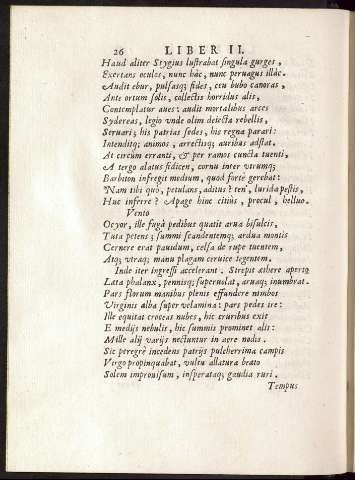 26 LIBER II.
Haud aliter Stygius lustrabat singula gurges,
Exertans oculos, nunc hàc, nunc peruagus illàc.
Audit ebur, pulsasq; fides, ceu bubo canoras,
Ante ortum solis, collectis horridus alis,
Contemplatur aues: audit mortalibus arces
Sydereas, legio unde olim deiecta rebellis,
Seruari; his patrias sedes, his regna parari:
Intenditq; animos, arrectisq; auribus adstat.
At circum erranti, & per ramos cuncta tuenti,
A tergo alatus fidicen, cornu inter utrumq;
Barbiton infregit medium, quod fortè gerebat:
Nam tibi quò, petulans, aditus? ten', lurida pestis,
Huc inferre? Apage hinc citiùs, procul, belluo.
Vento
Ocyor, ille fugâ pedibus quatit arua bisulcis,
Tuta petens; summi scandentemq; ardua montis
Cernere erat pauidum, celsa de rupe tuentem,
Atq; utraq; manu plagam ceruice tegentem.
Inde iter ingressi accelerant. Strepit æthere aperto
Lata phalanx, pennisq; superuolat, aruaq; inumbrat.
Pars florum manibus plenis effundere nimbos
Virginis alba super velamina: pars pedes ire:
Ille equitat croceas nubes, hic cruribus exit
E medijs nebulis, hic summis prominet alis:
Mille alij varijs nectuntur in aere nodis.
Sic peregrè incedens patrijs pulcherrima campis
Virgo propinquabat, vultu allatura beato
Solem improuisum, insperataq; gaudia ruri.
Tempus